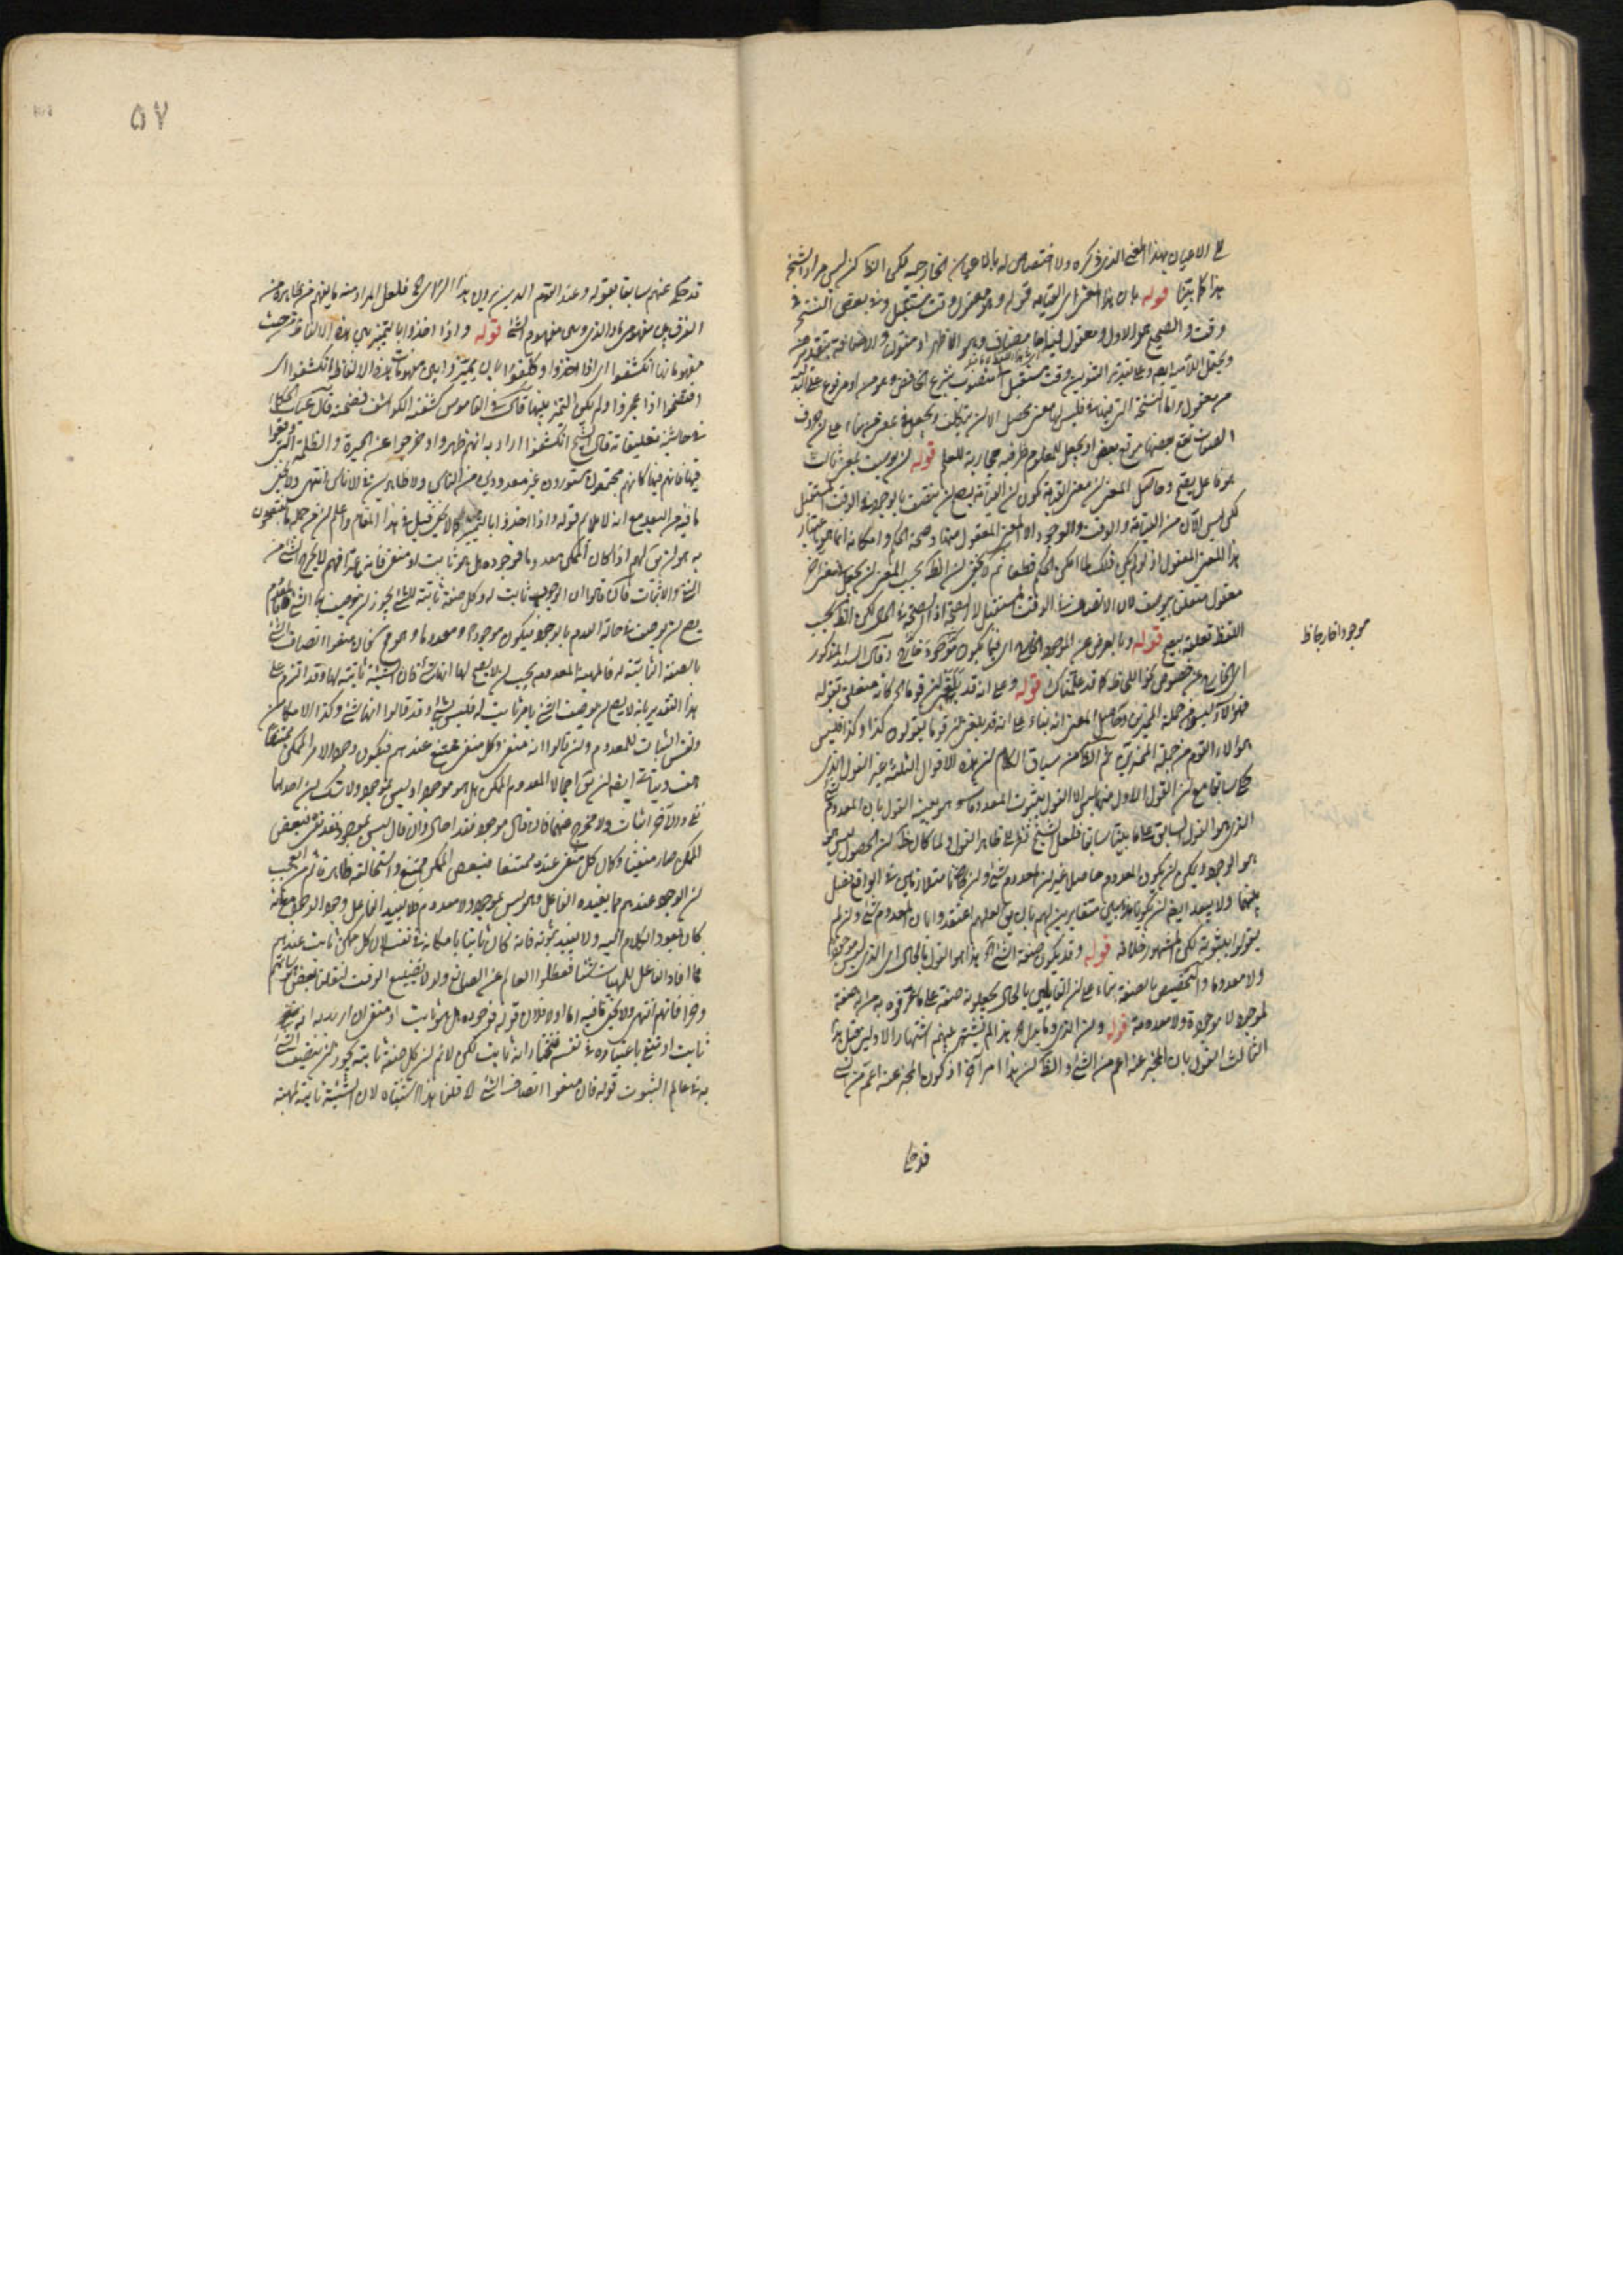 على الاعيان بهذا المعنى الذى ذكره ولا اختصاص له بالاعيان الخارجية لكن الظ كن ليس مراد الشيخ
هذا كما بينا قوله بان هذا المعنى اى القيامة قوله وهو معنى وقت مستقبل وفى بعض النسخ فى
وقت والصحيح هو الاول ومعقول
من معقول واما النسخة التى فليس لها معنى محصل الا ان يتكلف ويجعل فى بمعنى من بناء على ان حروف
الصلات يقع بعضها موقع بعض او يجعل المعلوم ظرفية مجازية للعلم قوله ان يوصف بمعنى ثالث
هو فاعل يصح وحاصل المعنى ان معنى القيامة كون ان القيامة يصح ان يتصف بالوجود فى الوقت المستقبل
لكن ليس الآن من القيامة والوقت والوجود الا المعنى المعقول منها وصحة الحكم وامكانه انما هو باعتبار
هذا المعنى المعقول اذ لو لم يكن ذلك لما امكن الحكم قطعا ثم لا يخفى ان الظ بحسب المعنى ان يجعل
معقول متعلق بيوصف لان الاتصاف فى الوقت المستقبل لا الصحة اذ الصحة فى الحال لكن الظ بحسب
اللفظ تعلقه بيصح قوله وما يعرض عن الوجود الخارجى اى فيما يكون موجودا خارجا وقال السيد المذكور
موجودا خارجا ظ
اى الخارج عن خصوص نحو اللحاظ كما قد علمناك قوله وعلى انه قد بلغنى ان قوما كانه متعلق بقوله
فهؤلاء ليسوا من جملة المميزين وحاصل المعنى انه بناء على انه قد بلغنى ان قوما يقولون كذا وكذا فليس
هؤلاء القوم من جملة المميزين ثم الظ من سياق الكلام ان هذه الاقوال الثلثة غير القول الذى
حكى سابقا مع ان القول الاول منها ليس الا القول بثبوت المعدومات وهو بعينه القول بان المعدوم شئ
الذى هو القول السابق على ما بينا سابقا فلعل الشيخ نظر الى ظاهر القول ولما كان ظ ان الحصول ليس
هو الوجود ويمكن ان يكون المعدوم حاصل غير ان المعدوم شئ وان كانا متلازمين فى الواقع فصل
بينهما ولا يبعد ايضا ان يكونا مذهبين متغايرين لهم بان يق لعلهم اعتقدوا بان المعدوم شئ وان لم
يقولوا بثبوته لكن المشهور خلافه قوله وقد يكون صفة الشئ اه هذا هو القول بالحال اى الذى ليس موجودا
ولا معدوما والتخصيص بالصفة بناء على ان القايلين بالحال يجعلونه صفة على ما عرفوه به من انه صفة
لموجود لا موجودة ولا معدومة قوله وان الذى وما يدل اه هذا لم يشتهر عنهم اشتهار الاولين مثل هذا
الثالث القول بان المخبر عنه اعم من الشئ والظ ان هذا امر آخر اذ كون المخبر عنه اعم من الشئ
قد حكى
٥٧
قد حكى عنهم سابقا بقوله وعند القوم الذين يرون هذا الراى اه فلعل المراد منه ما يفهم من ظاهره من
الفرق بين مفهوم ما والذى وبين مفهوم الشئ قوله واذا اخذوا بالتميز بين هذه الالفاظ من حيث
مفهوماتها انكشفوا اى اذا اخذوا وكلفوا بان يميزوا بين مفهومات هذه الالفاظ انكشفوا اى
افتضحوا اذا عجزوا ولم يكن التميز بينها قال فى القاموس كشفته الكواشف فضحته قال غياث الحكماء
فى حاشية تعليقاته قال الشيخ انكشفوا اراد به انهم ظهروا وخرجوا عن الحيرة والظلمة التى وقعوا
فيها فانهم فيها كانهم مجتمعون مستورون غير معدودين من الناس ولا ظاهرين فى الاناس انتهى ولا يخفى
ما فيه من البعد مع انه لا يلايم قوله واذا اخذوا بالتميز كما لا يخفى قيل فى هذا المقام واعلم ان من جملة ما يفتضحون
به هو ان يق لهم اذا كان الممكن معدوما فوجوده هل هو ثابت او منفى فانه عندهم لا يخرج الشئ من
النفى والاثبات فان قالوا ان الوجود ثابت له وكل صفة ثابتة للشئ يجوز ان يوصف بها الشئ فالمعدوم
يصح ان يوصف فى حالة العدم بالوجود فيكون موجودا ومعدوما وهو مح فان منعوا اتصاف الشئ
بالصفة الثابتة له فالمهية المعدومة يجب ان لا يصح لها انها شئ فان الشيئية ثابتة لها وقد التزم على
هذا التقدير بانه لا يصح ان يوصف الشئ بامر ثابت له فليس بشئ وقد قالوا انها شئ وكذا الامكان
ونفس الثبات للمعدوم وان قالوا انه منفى وكل منفى ممتنع عندهم فيكون وجود الامر الممكن ممتنعا
هف ويتاتى ايضا ان يق اجمالا المعدوم الممكن هل هو موجود او ليس بموجود ولا شك ان احدهما
نفى والآخر اثبات ولا مخرج عنهما فان قال موجود فقد احال وان قال ليس بموجود فقد نفى فبعض
الممكن صار منفيا وكان كل منفى عنده ممتنعا فبعض الممكن ممتنع واستحالته ظاهرة ثم من العجب
ان الوجود عندهم مما يفيده الفاعل وهو ليس بموجود ولا معدوم فلا يفيد الفاعل وجود الوجود مع انه
كان يعود الكلام اليه ولا يفيد ثبوته فانه كان ثابتا بامكانه فى نفسه لان كل ممكن ثابت عندهم
فما افاد الفاعل للمهيات شيئا فعطلوا العالم عن الصانع ولولا تضييع الوقت لنقلنا بعض هوساتهم
وخرافاتهم انتهى ولا يخفى ما فيه اما اولا فلان قوله فوجوده هل هو ثابت او منفى ان اريد به انه
ثابت او منفى باعتباره فى نفسه فنختار انه ثابت لكن لا نم ان كل صفة ثابتة يجوز ان يتصف الشئ
به فى عالم الثبوت قوله فان منعوا اتصاف الشئ اه قلنا هذا اشتباه لان الشيئية ثابتة لمهية